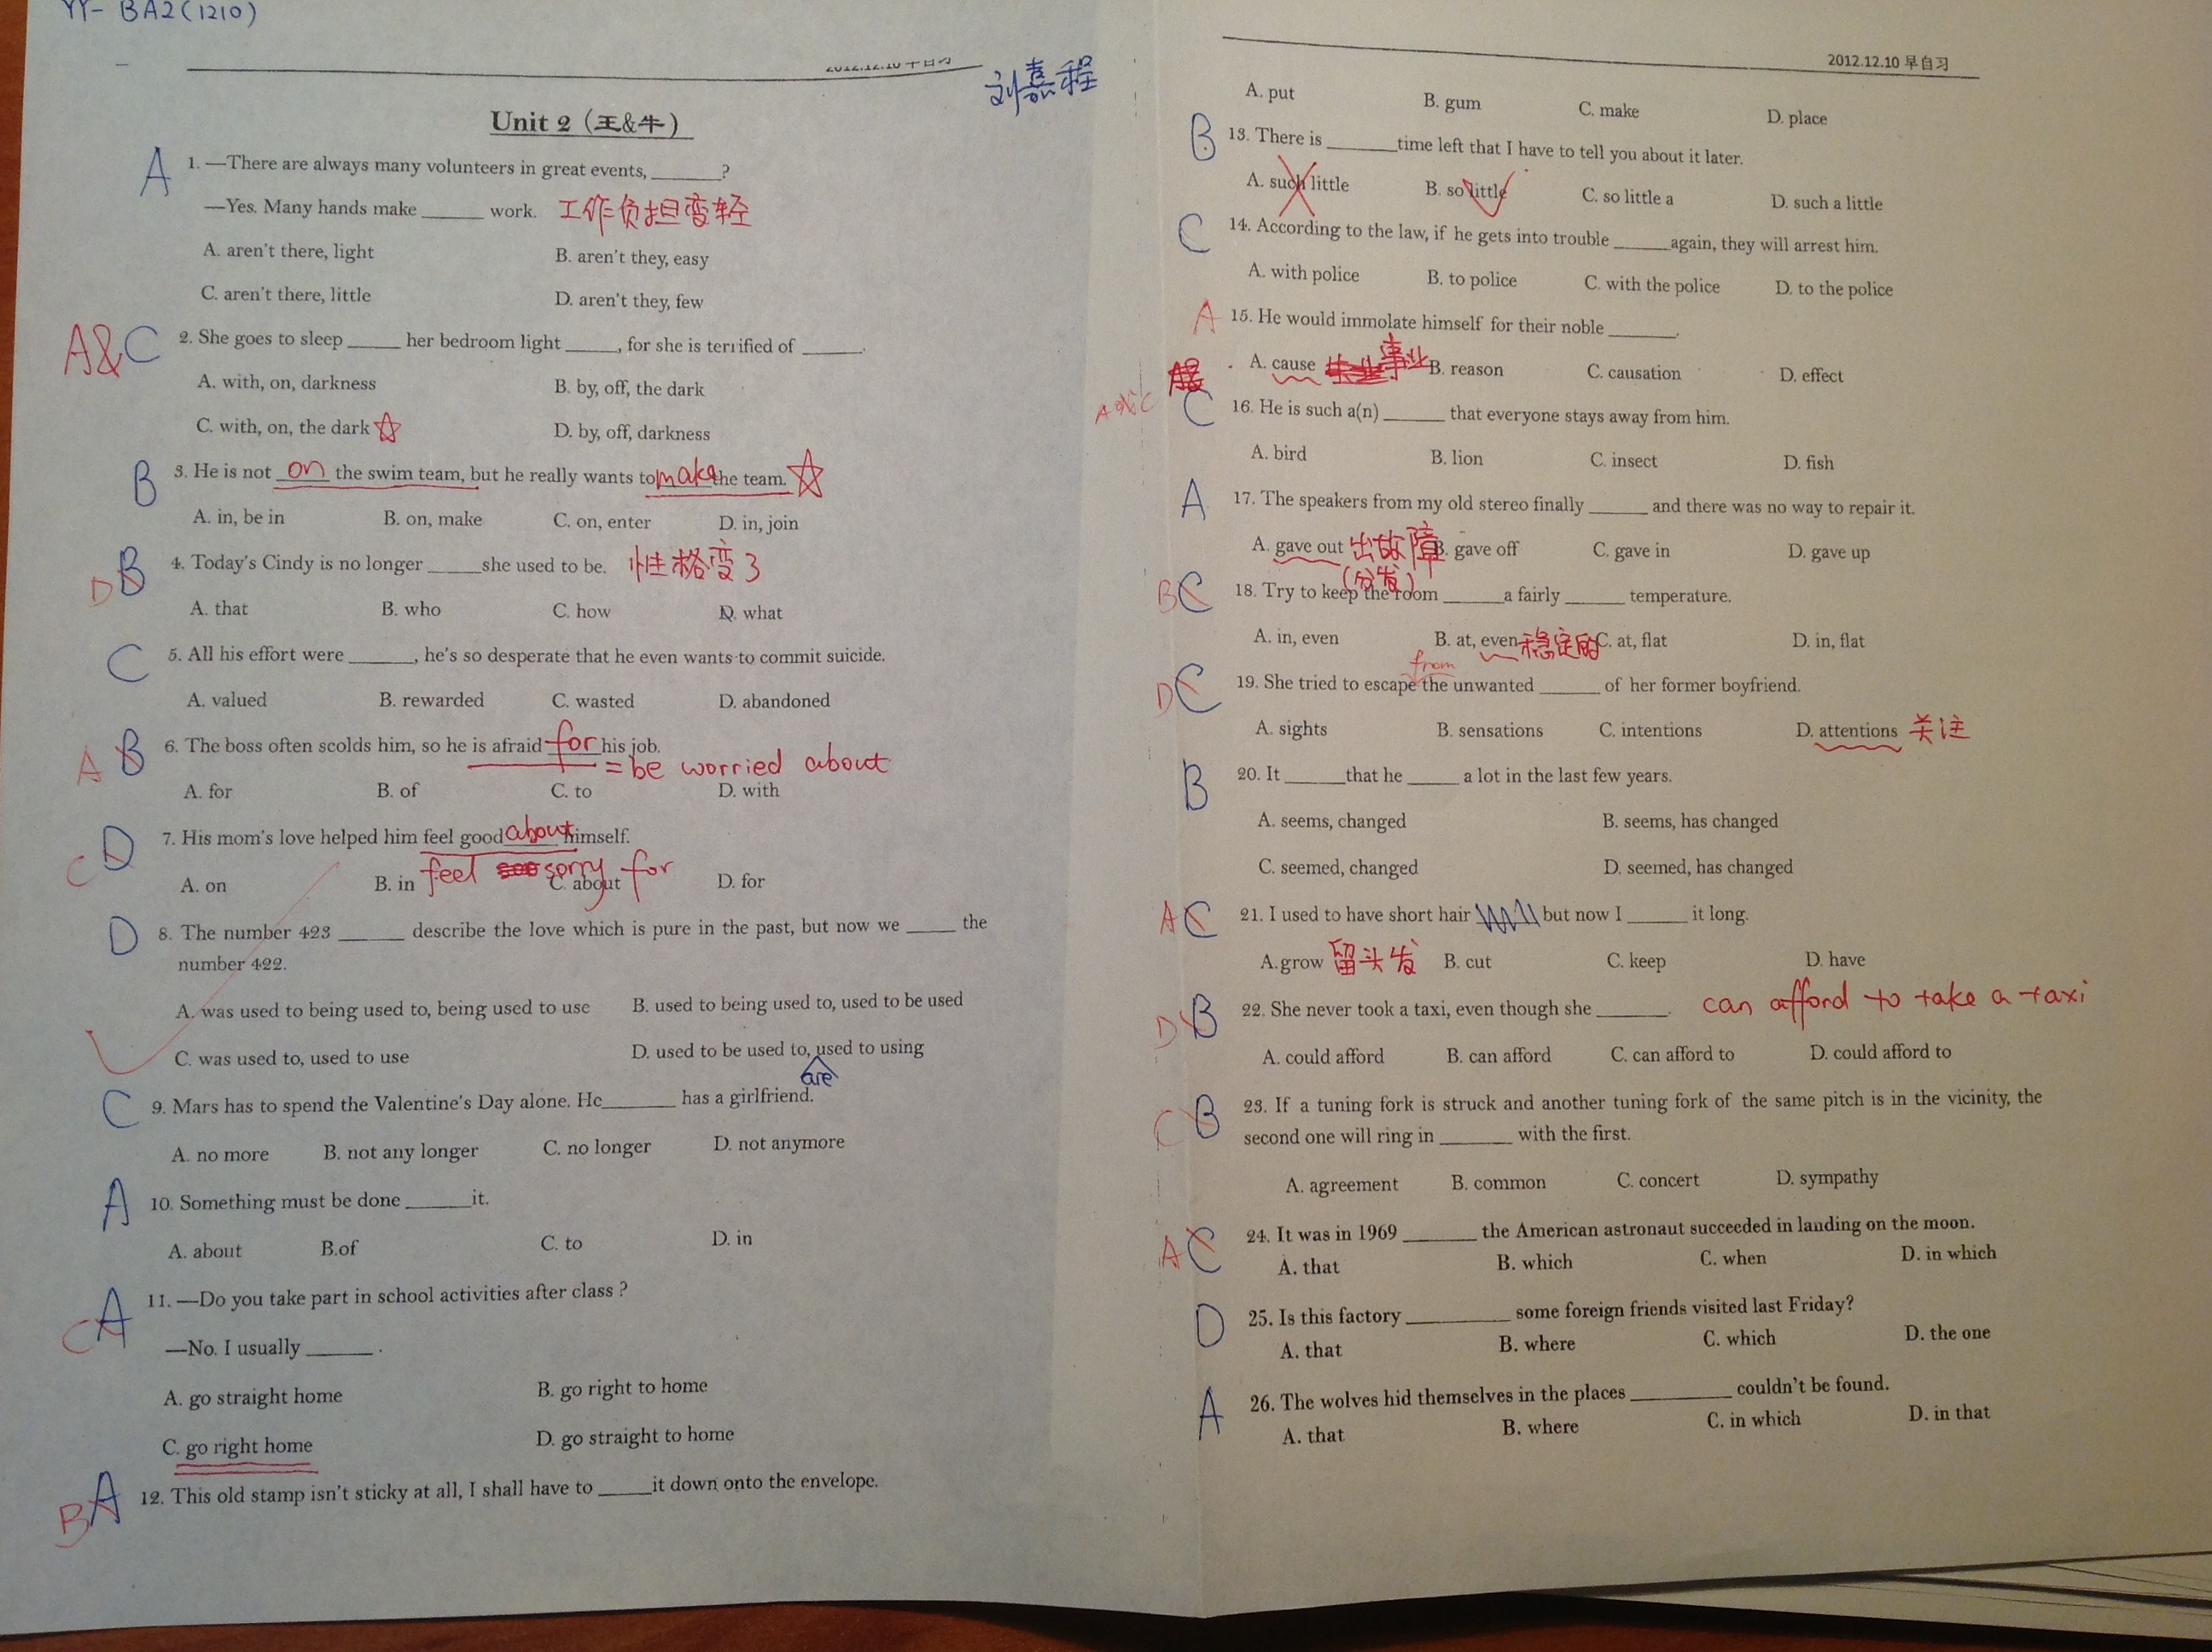 YY- BA2(1210)
刘嘉程
Unit 2（王&牛）
A 1. —There are always many volunteers in great events, ______?
—Yes. Many hands make ______ work. 工作负担变轻
A. aren't there, light B. aren't they, easy
C. aren't there, little D. aren't they, few
A&C 2. She goes to sleep _____ her bedroom light _____, for she is terrified of _____.
A. with, on, darkness B. by, off, the dark
C. with, on, the dark ☆ D. by, off, darkness
B 3. He is not on the swim team, but he really wants to make the team. ☆
A. in, be in B. on, make C. on, enter D. in, join
D B 4. Today's Cindy is no longer _____she used to be. 性格变了
A. that B. who C. how D. what
C 5. All his effort were ______, he's so desperate that he even wants to commit suicide.
A. valued B. rewarded C. wasted D. abandoned
A B 6. The boss often scolds him, so he is afraid for his job.
= be worried about
A. for B. of C. to D. with
C D 7. His mom's love helped him feel good about himself.
feel sorry for
A. on B. in C. about D. for
D 8. The number 423 ______ describe the love which is pure in the past, but now we _____ the
number 422.
A. was used to being used to, being used to use B. used to being used to, used to be used
C. was used to, used to use D. used to be used to, used to using
are
C 9. Mars has to spend the Valentine's Day alone. He_______ has a girlfriend.
A. no more B. not any longer C. no longer D. not anymore
A 10. Something must be done ______it.
A. about B.of C. to D. in
C A 11. —Do you take part in school activities after class ?
—No. I usually ______ .
A. go straight home B. go right to home
C. go right home D. go straight to home
B A 12. This old stamp isn't sticky at all, I shall have to _____it down onto the envelope.
2012.12.10 早自习
A. put B. gum C. make D. place
B 13. There is _______time left that I have to tell you about it later.
A. such little B. so little C. so little a D. such a little
C 14. According to the law, if he gets into trouble _____again, they will arrest him.
A. with police B. to police C. with the police D. to the police
A 15. He would immolate himself for their noble ______.
A. cause 事业 B. reason C. causation D. effect
C 16. He is such a(n) ______ that everyone stays away from him.
A. bird B. lion C. insect D. fish
A 17. The speakers from my old stereo finally _____ and there was no way to repair it.
A. gave out 出故障 B. gave off C. gave in D. gave up
(分发)
B C 18. Try to keep the room ______a fairly ______ temperature.
A. in, even B. at, even 稳定的 C. at, flat D. in, flat
from
D C 19. She tried to escape the unwanted ______ of her former boyfriend.
A. sights B. sensations C. intentions D. attentions 关注
B 20. It ______that he _____ a lot in the last few years.
A. seems, changed B. seems, has changed
C. seemed, changed D. seemed, has changed
A C 21. I used to have short hair but now I ______ it long.
A.grow 留头发 B. cut C. keep D. have
D B 22. She never took a taxi, even though she _______. can afford to take a taxi
A. could afford B. can afford C. can afford to D. could afford to
C B 23. If a tuning fork is struck and another tuning fork of the same pitch is in the vicinity, the
second one will ring in _______ with the first.
A. agreement B. common C. concert D. sympathy
A C 24. It was in 1969 _______ the American astronaut succeeded in landing on the moon.
A. that B. which C. when D. in which
D 25. Is this factory __________ some foreign friends visited last Friday?
A. that B. where C. which D. the one
A 26. The wolves hid themselves in the places __________ couldn't be found.
A. that B. where C. in which D. in that